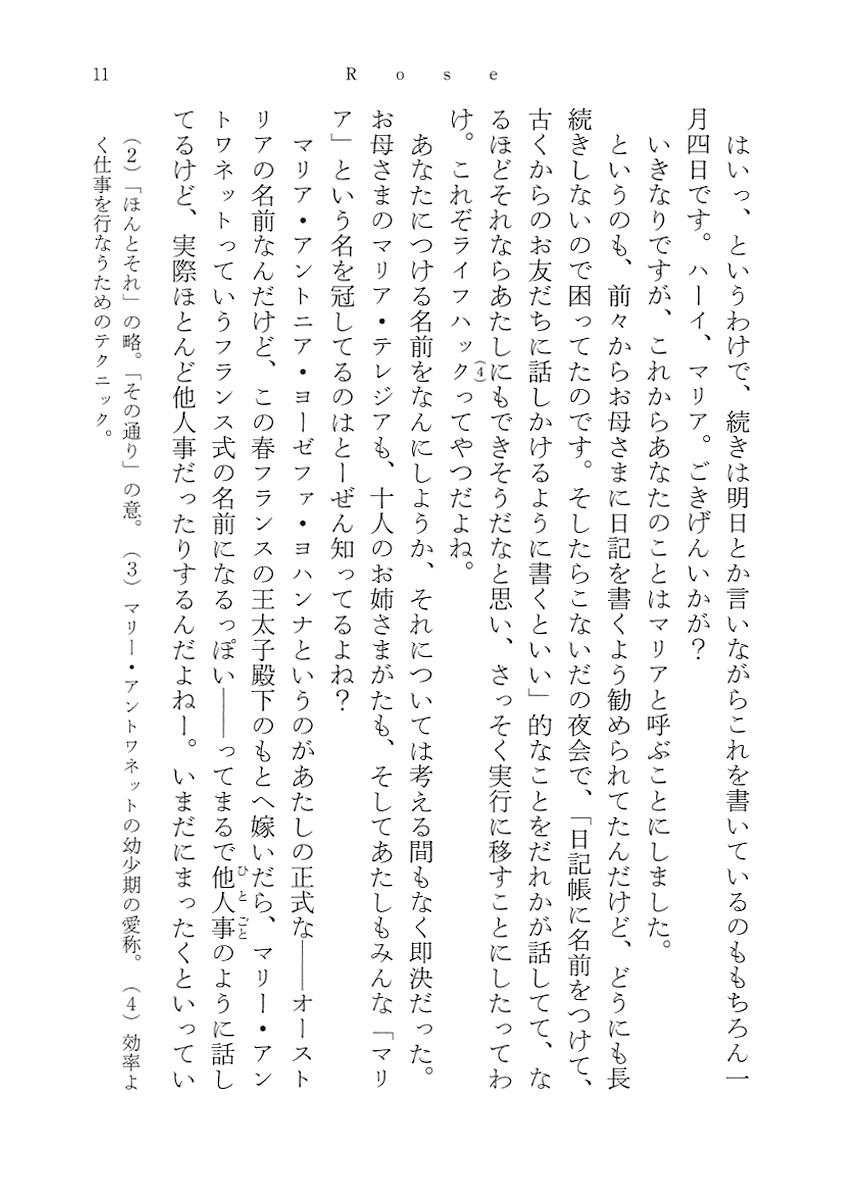 11
Rose
はいっ、というわけで、続きは明日とか言いながらこれを書いているのももちろん一
月四日です。ハーイ、マリア。ごきげんいかが？
いきなりですが、これからあなたのことはマリアと呼ぶことにしました。
というのも、前々からお母さまに日記を書くよう勧められてたんだけど、どうにも長
続きしないので困ってたのです。そしたらこないだの夜会で、「日記帳に名前をつけて、
古くからのお友だちに話しかけるように書くといい」的なことをだれかが話してて、な
るほどそれならあたしにもできそうだなと思い、さっそく実行に移すことにしたってわ
け。これぞライフハック（4）ってやつだよね。
あなたにつける名前をなんにしようか、それについては考える間もなく即決だった。
お母さまのマリア・テレジアも、十人のお姉さまがたも、そしてあたしもみんな「マリ
ア」という名を冠してるのはとーぜん知ってるよね？
マリア・アントニア・ヨーゼファ・ヨハンナというのがあたしの正式な――オースト
リアの名前なんだけど、この春フランスの王太子殿下のもとへ嫁いだら、マリー・アン
トワネットっていうフランス式の名前になるっぽい――ってまるで他人事のように話し
ひとごと
てるけど、実際ほとんど他人事だったりするんだよねー。いまだにまったくといってい
（2）「ほんとそれ」の略。「その通り」の意。　（3）マリー・アントワネットの幼少期の愛称。　（4）効率よ
く仕事を行なうためのテクニック。